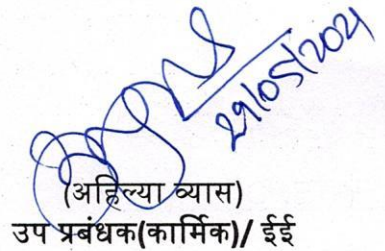 29/05/2021
(अहिल्या व्यास)
उप प्रबंधक(कार्मिक)/ ईई